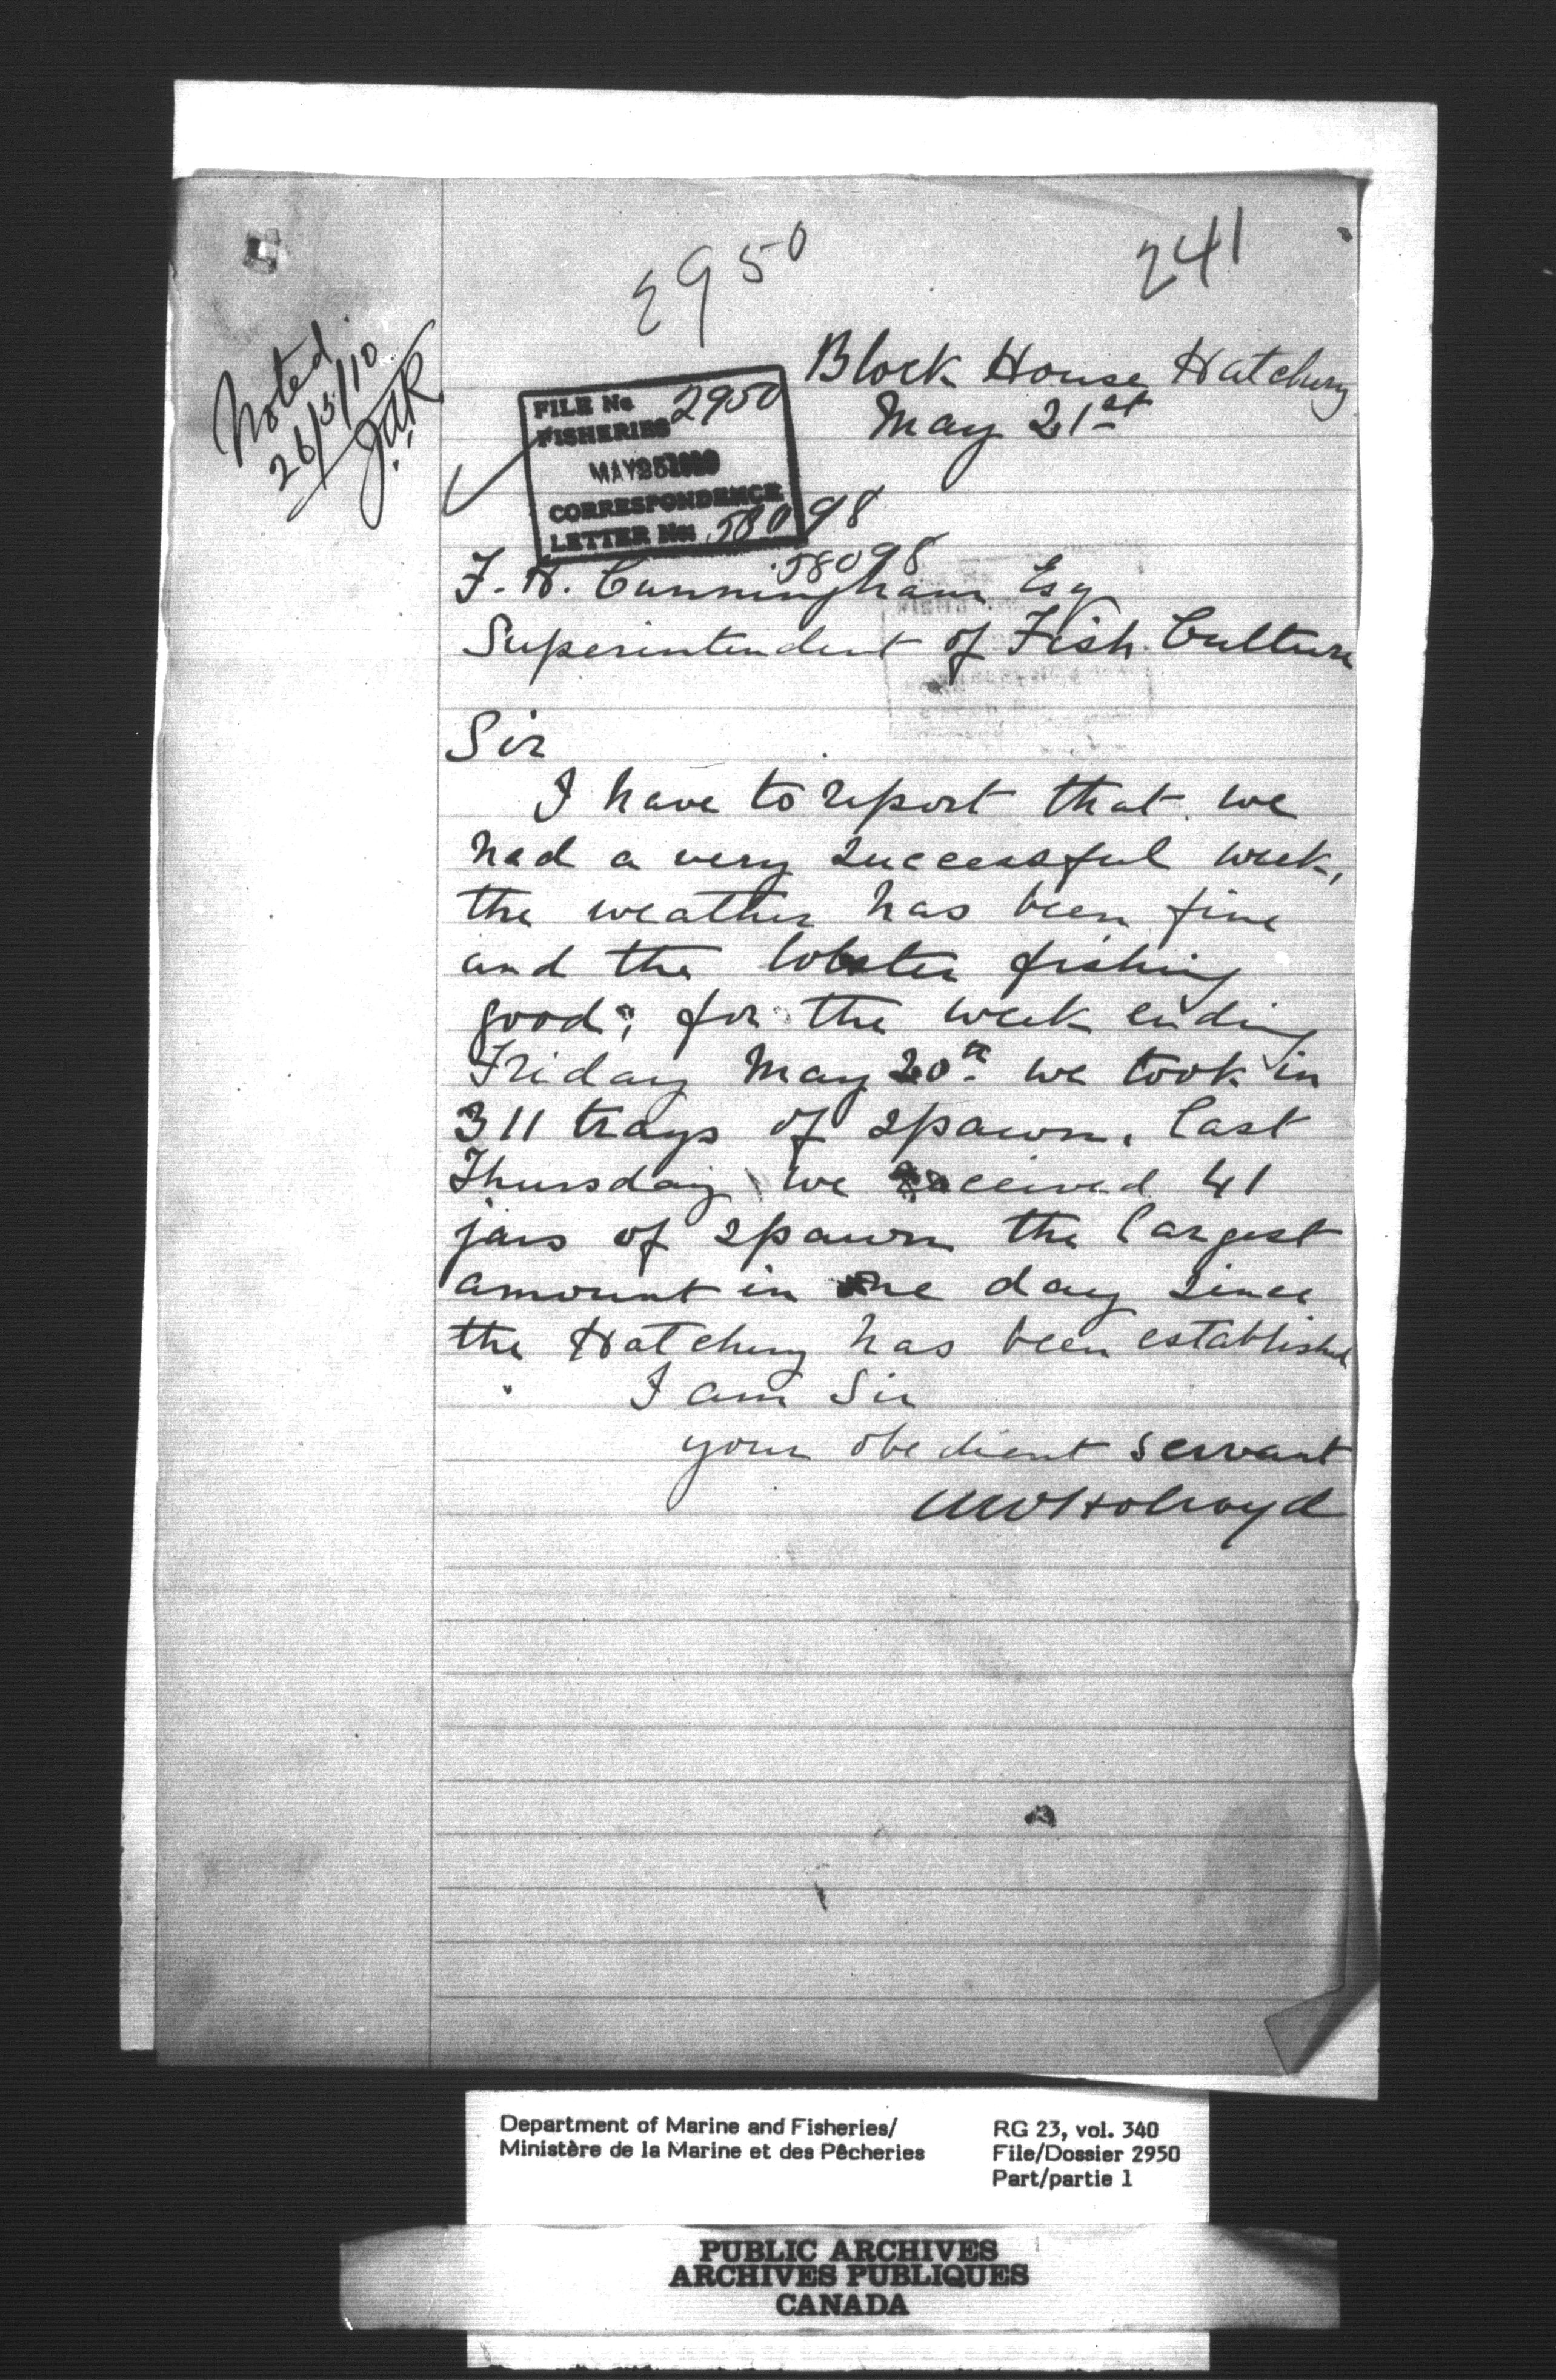 2950
241
Noted
26/5/10
Block House Hatchery
May 21st
FILE No 2950
FISHERIES
MAY 25 1910
CORRESPONDENCE
LETTER No: 58098
58098
F. H. Cunningham Esq
Superintendent of Fish Culture
Sir
I have to report that we
had a very successful week,
the weather has been fine
and the lobster fishing
good; for the week ending
Friday May 20th we took in
311 trays of spawn. Last
Thursday we received 41
jars of spawn the largest
amount in one day since
the Hatchery has been established
I am Sir
your obedient servant
Holroyd
Department of Marine and Fisheries/
Ministère de la Marine et des Pêcheries
RG 23, vol. 340
File/Dossier 2950
Part/partie 1
PUBLIC ARCHIVES
ARCHIVES PUBLIQUES
CANADA